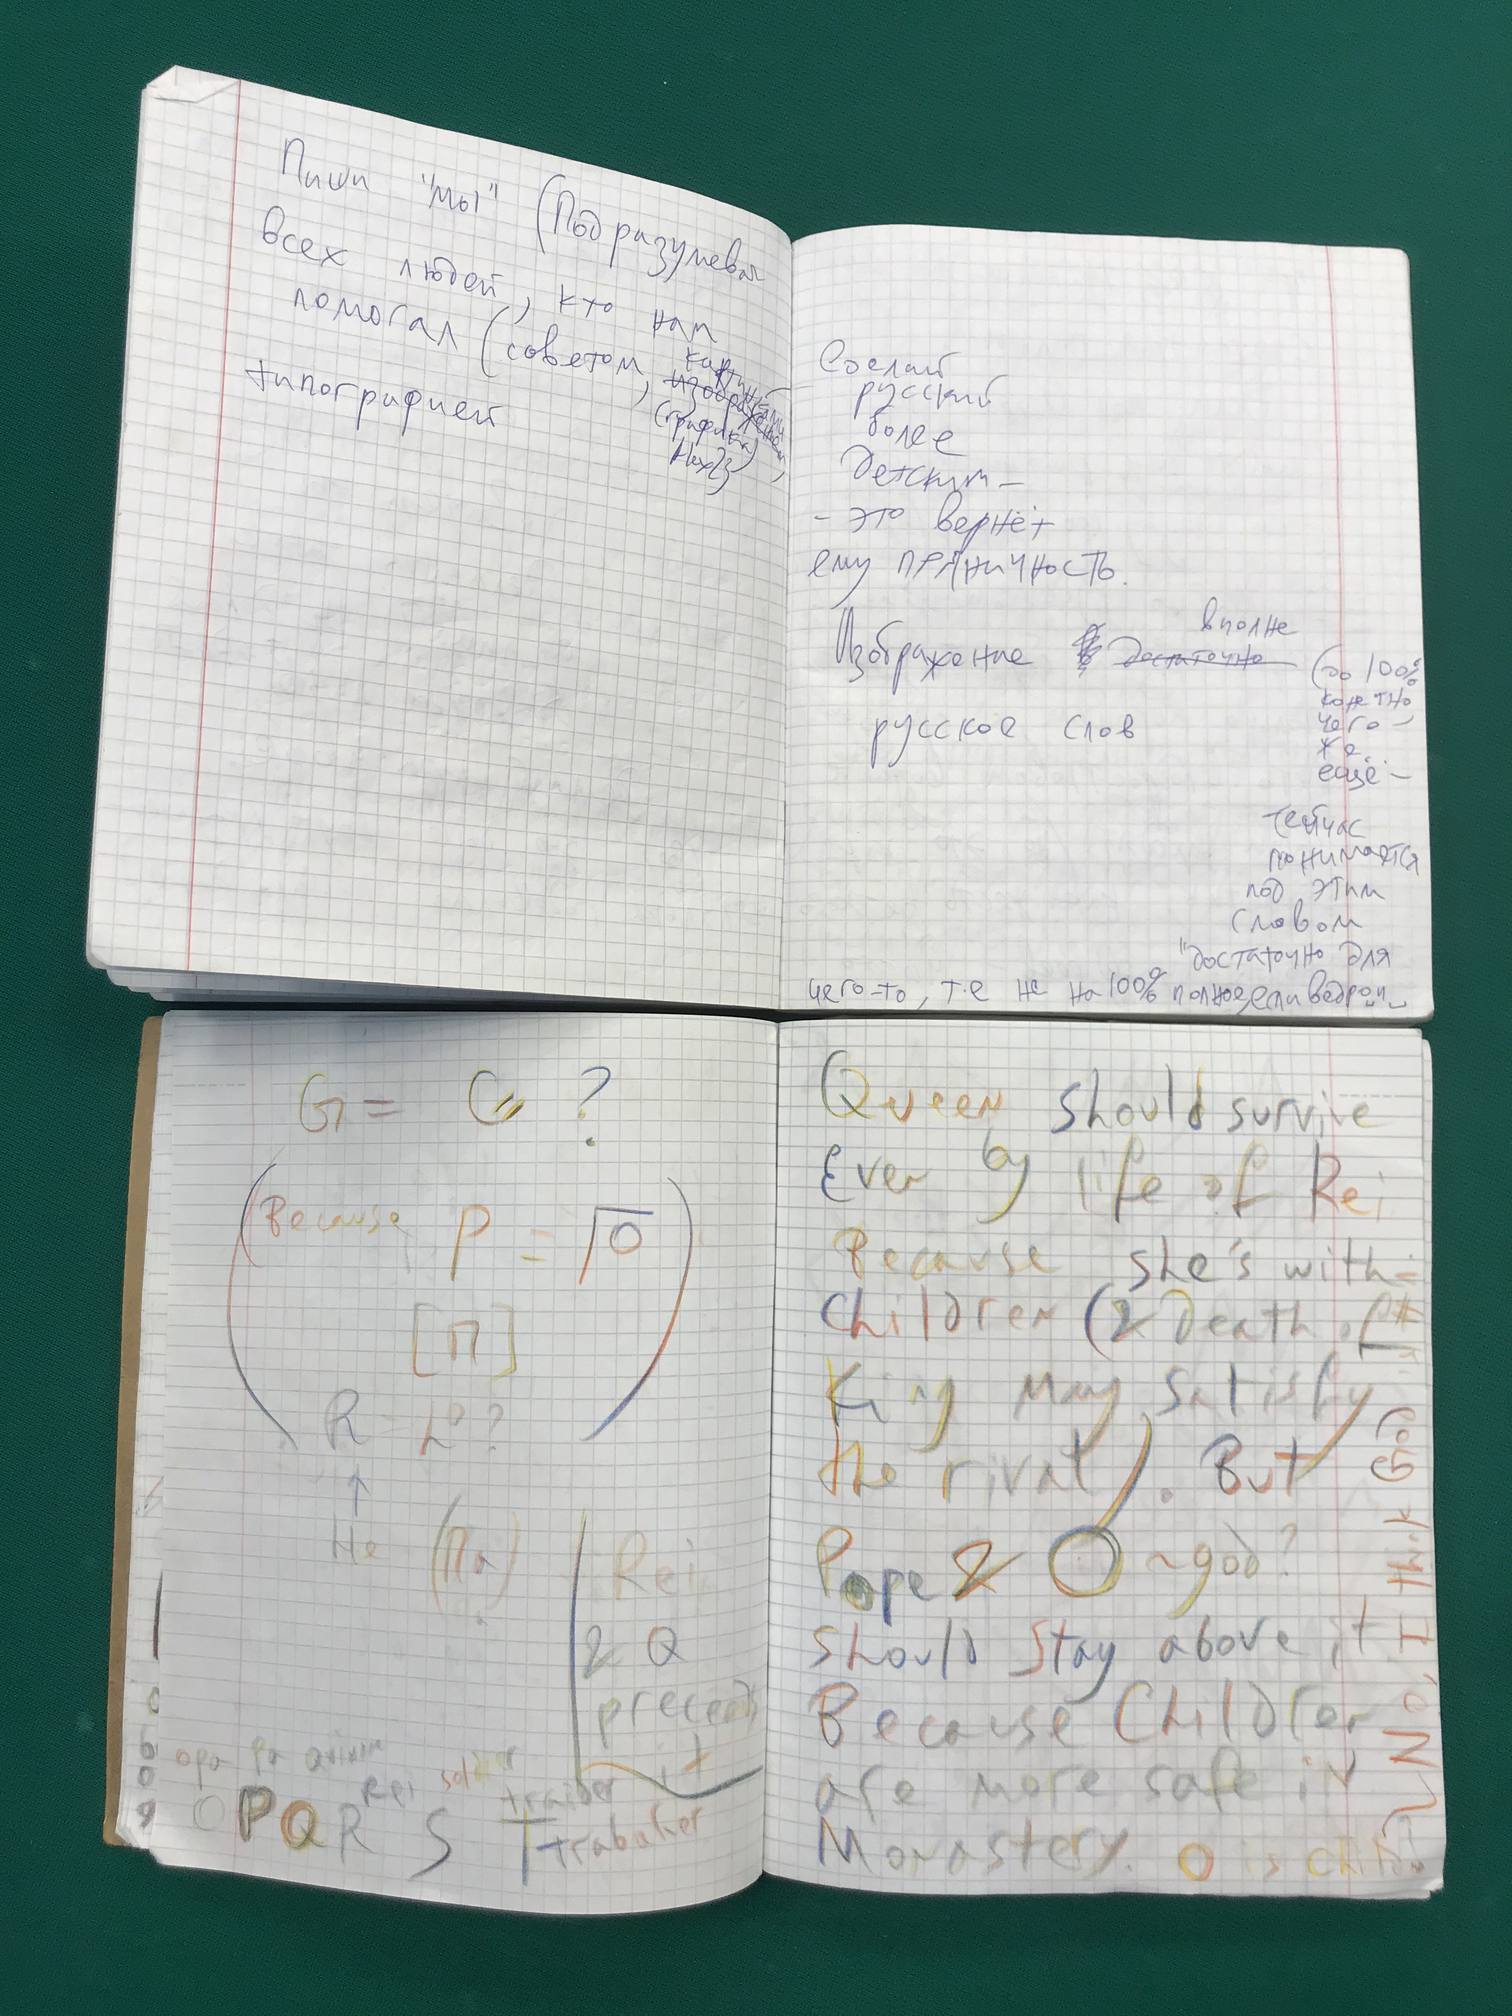 Пиши "мы" (Подразумевая
всех людей, кто нам
помогал (советом, картинками
изображением,
(графика)
типографией
Сделай
русский
более
детским –
– это вернёт
ему пряничность.
Изображение достаточно вполне
русское слов
(до 100%
конечно
чего-
же
ещё –
сейчас
понимается
под этим
словом
"достаточно для
чего-то, т.е не на 100% полное если ведро..
G = G ?
(Because P = Го
[П]
R = ?
He (Па)
Rei
& Q
precends
it
ора ра
Rei soldier
traider
O P Q R S T trabaker
Queen should survive
Even by life of Rei
Because she's with
Children (& Death of
King may satisfy
the rival). But
Pope & O ~god?
should stay above it
Because Children
are more safe in
Monastery. O is child
No, I think God